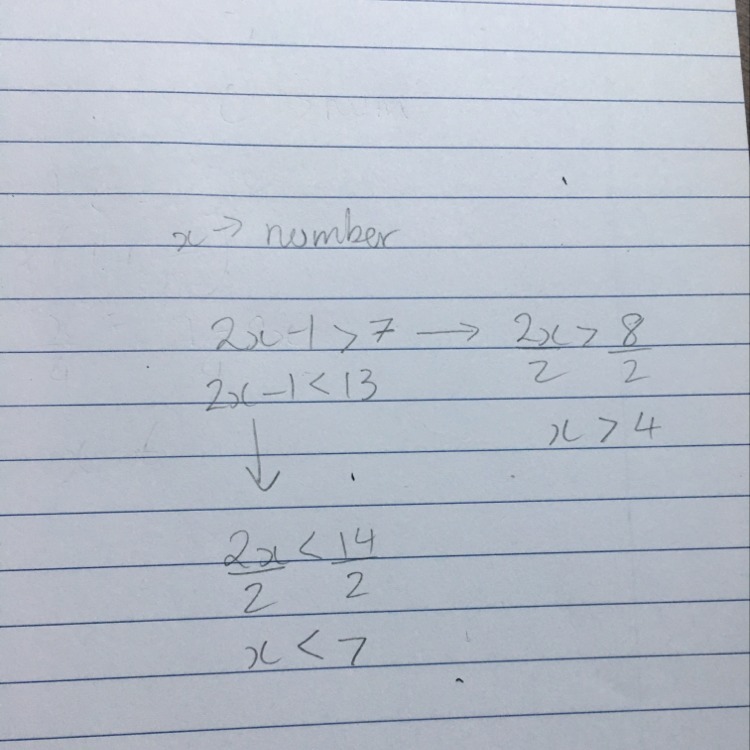 x → number
2x - 1 > 7 → 2x/2 > 8/2
2x - 1 < 13
x > 4
↓
2x/2 < 14/2
x < 7